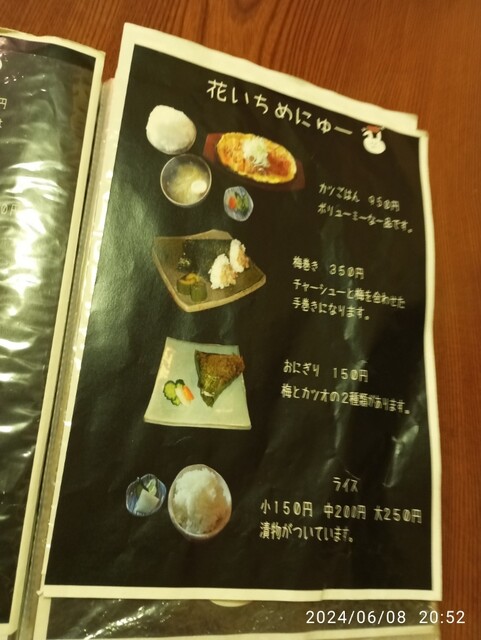 花いちめにゅー
カツごはん 950円
ボリューミーな一品です。
梅巻き 350円
チャーシューと梅を合わせた
手巻きになります。
おにぎり 150円
梅とカツオの2種類があります。
ライス
小150円 中200円 大250円
漬物がついています。
2024/06/08 20:52